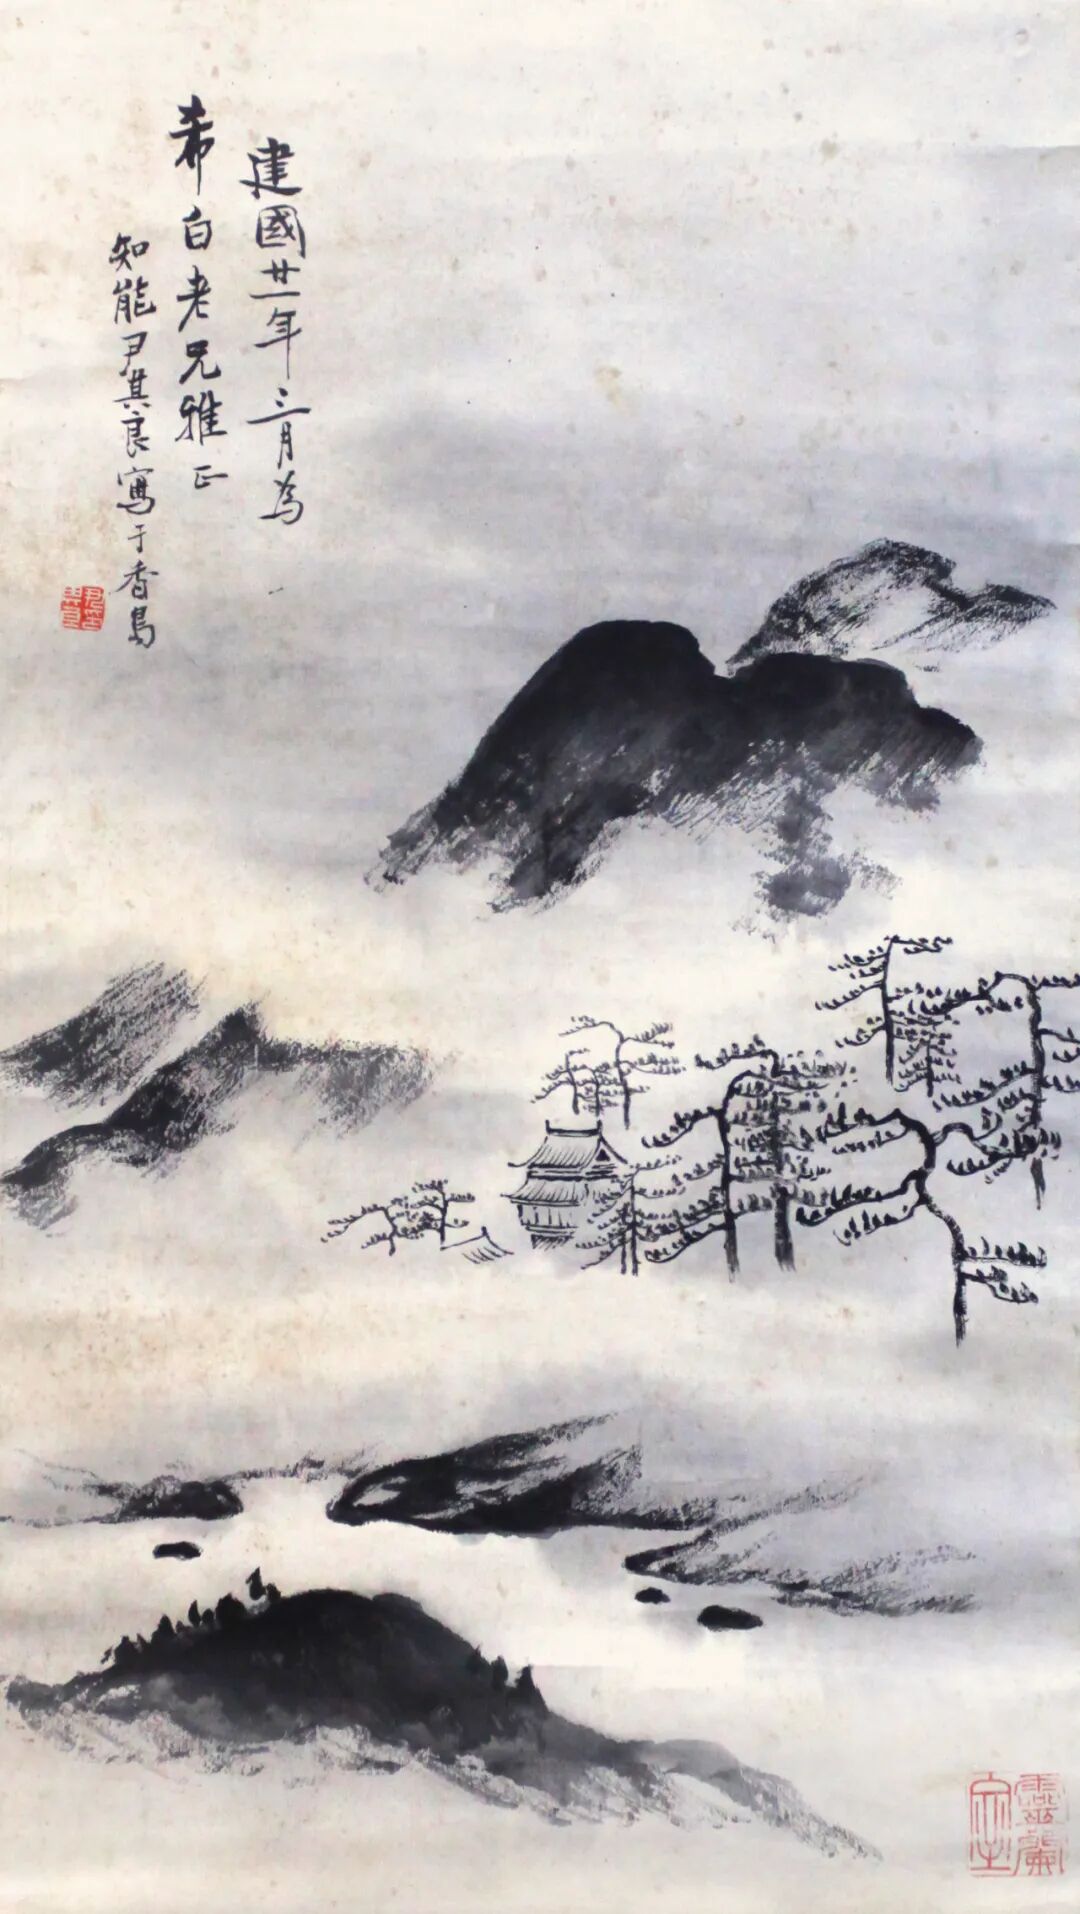 建國廿一年三月為
希白老兄雅正
知能尹其良寫于香島